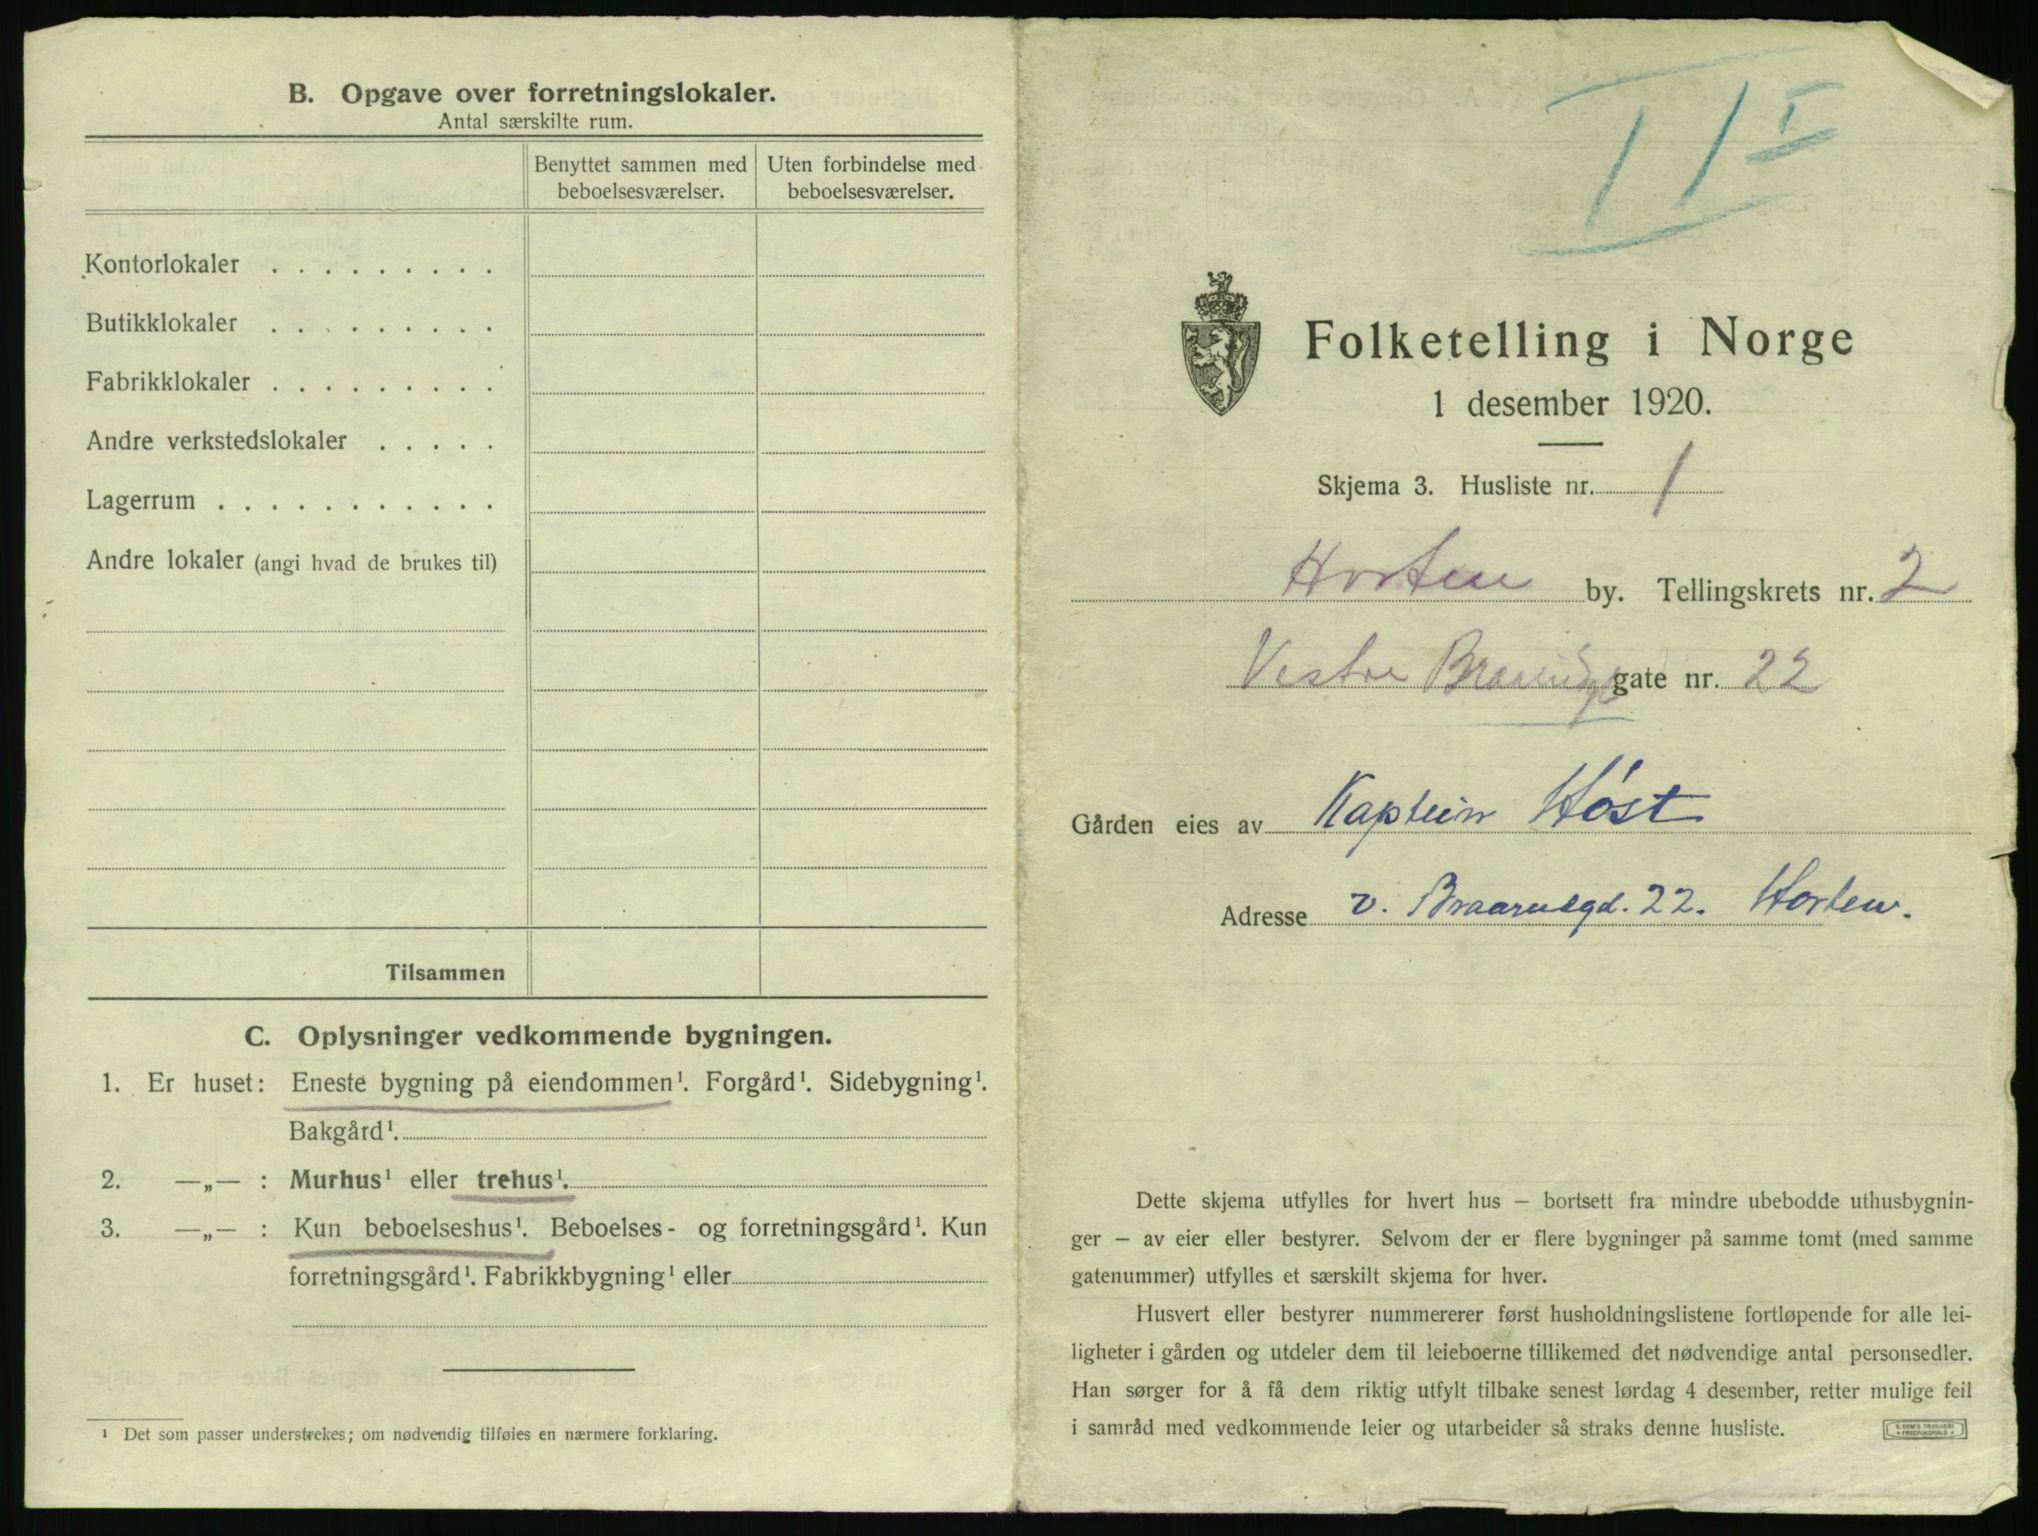 B. Opgave over forretningslokaler.
Antal særskilte rum.
Benyttet sammen med beboelsesværelser.
Uten forbindelse med beboelsesværelser.
Kontorlokaler . . . . . . . . .
Butikklokaler . . . . . . . . .
Fabrikklokaler . . . . . . . . .
Andre verkstedslokaler . . . . .
Lagerrum . . . . . . . . . . .
Andre lokaler (angi hvad de brukes til)
Tilsammen
C. Oplysninger vedkommende bygningen.
1. Er huset: Eneste bygning på eiendommen¹. Forgård¹. Sidebygning¹.
Bakgård¹.
2. —„— : Murhus¹ eller trehus¹.
3. —„— : Kun beboelseshus¹. Beboelses- og forretningsgård¹. Kun
forretningsgård¹. Fabrikkbygning¹ eller
¹ Det som passer understrekes; om nødvendig tilføies en nærmere forklaring.
II I
Folketelling i Norge
1 desember 1920.
Skjema 3. Husliste nr. 1
Horten by. Tellingskrets nr. 2
Vestre gate nr. 22
Gården eies av Kaptein Høst
Adresse v. Braarudgd. 22. Horten.
Dette skjema utfylles for hvert hus – bortsett fra mindre ubebodde uthusbygnin-
ger – av eier eller bestyrer. Selvom der er flere bygninger på samme tomt (med samme
gatenummer) utfylles et særskilt skjema for hver.
Husvert eller bestyrer nummererer først husholdningslistene fortløpende for alle lei-
ligheter i gården og utdeler dem til leieboerne tillikemed det nødvendige antal personsedler.
Han sørger for å få dem riktig utfylt tilbake senest lørdag 4 desember, retter mulige feil
i samråd med vedkommende leier og utarbeider så straks denne husliste.